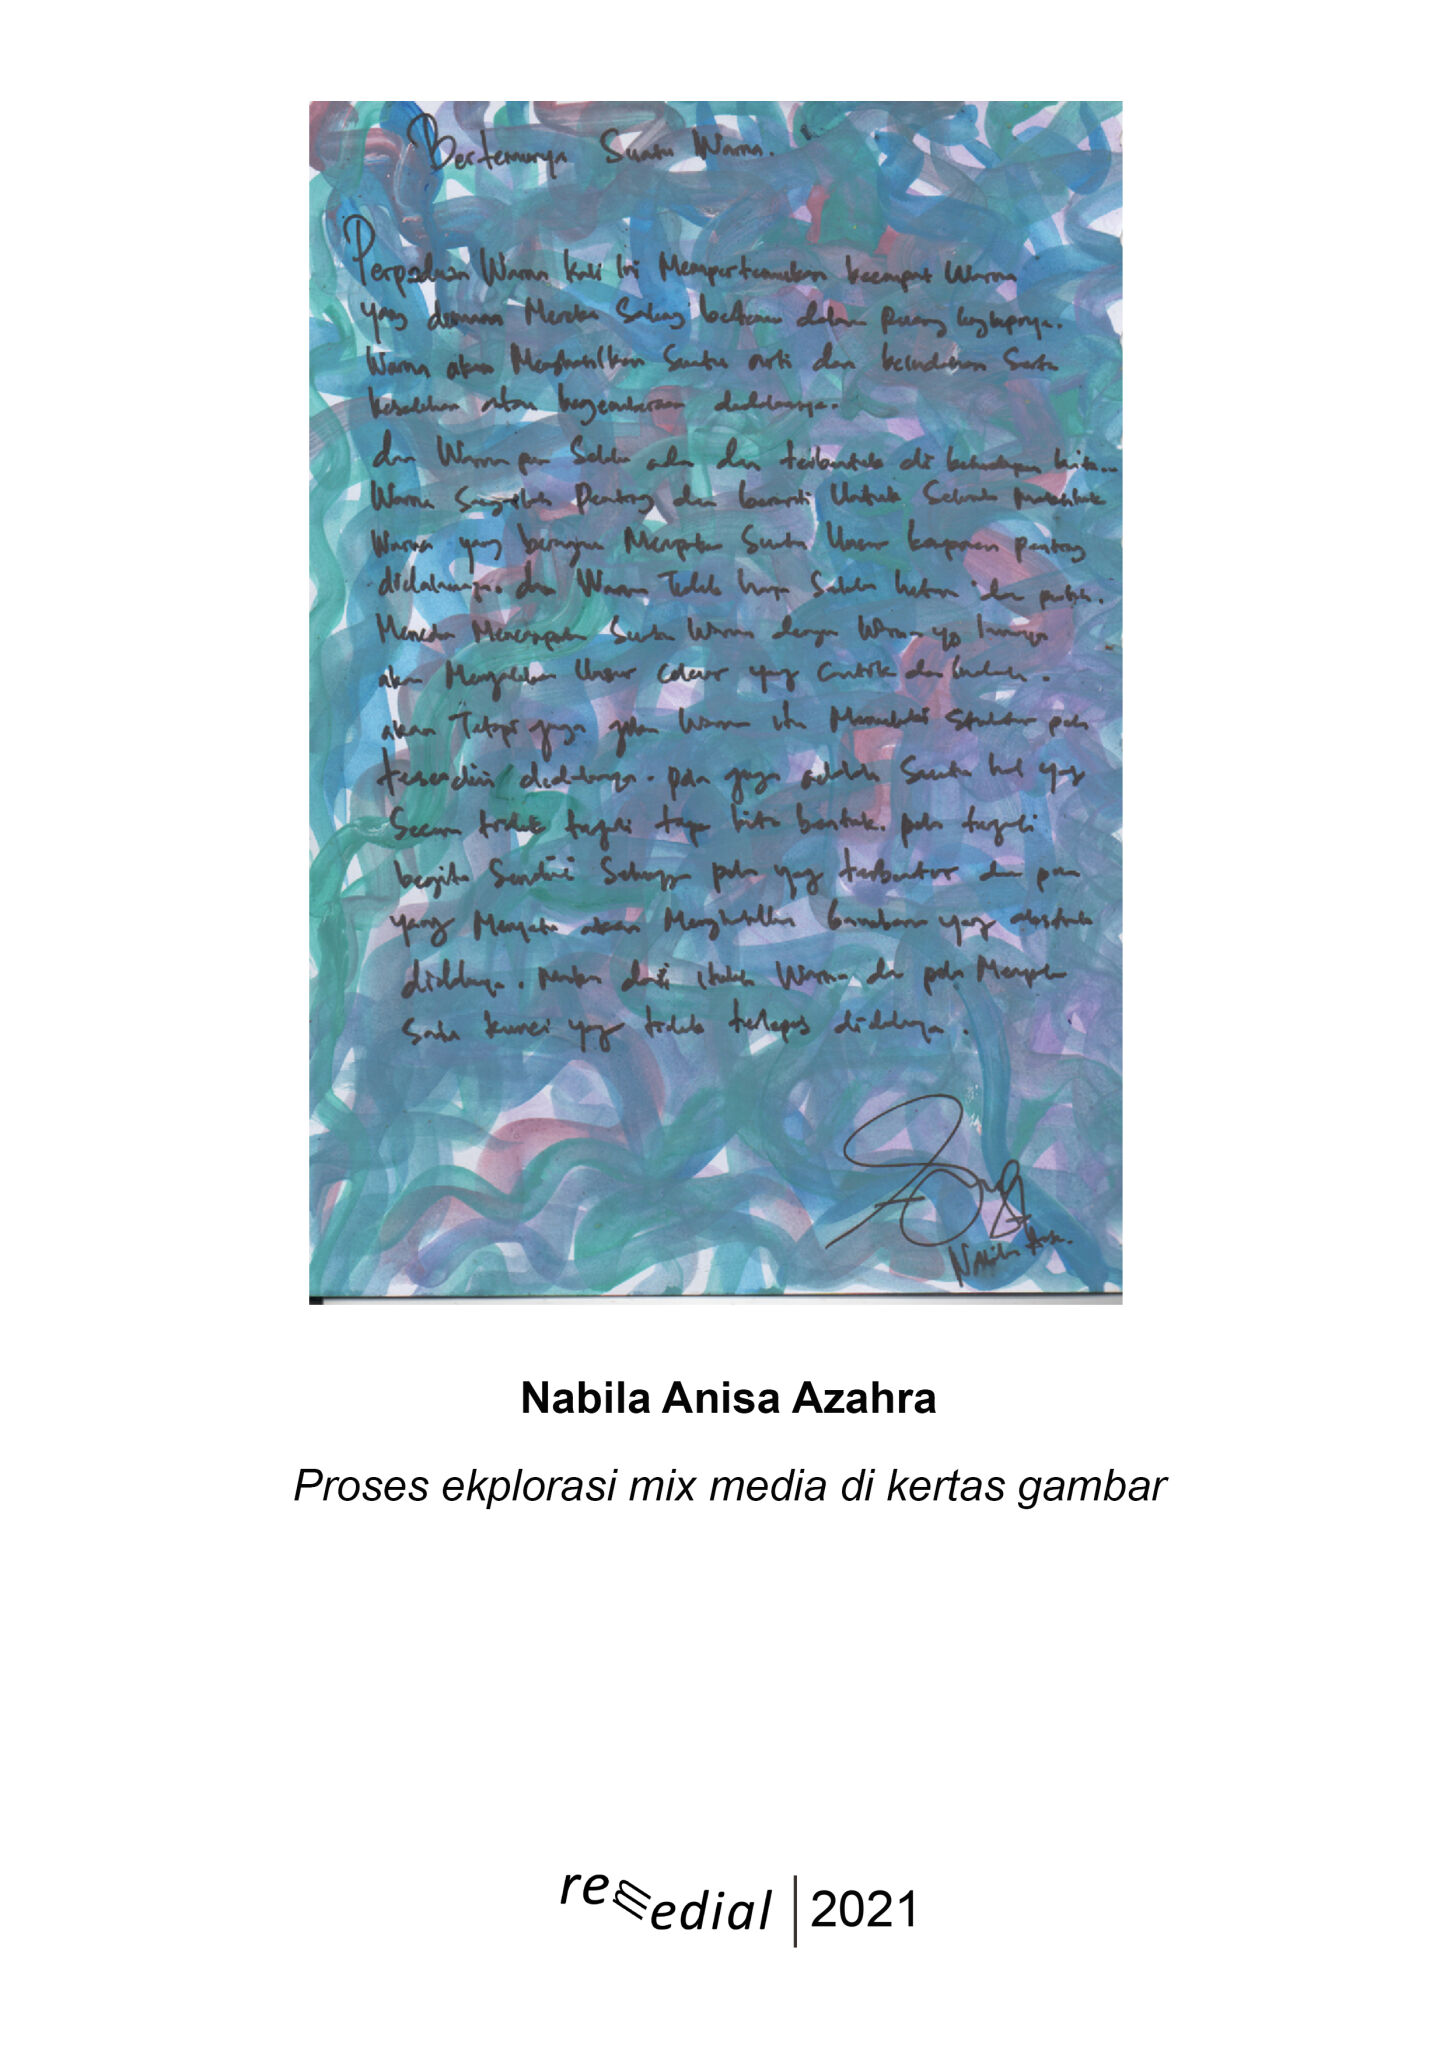 Bertemunya Suatu Warna.
Perpaduan Warna kali Ini Mempertemukan keempat Warna
yang dimana Mereka Saling bertemu dalam
Warna akan Menghasilkan Suatu arti dan keindahan Suatu
kesedihan atau kegembiraan didalamnya.
dan Warna pun Selalu ada dan terbentuk di kehidupan kita..
Warna Sangatlah Penting dan berarti Untuk Seluruh
Warna yang beragam Merupakan Suatu Unsur penting
didalamnya. dan Warna Tidak hanya Selalu hitam dan putih.
Suatu Warna dengan Warna yg lainnya
akan Menjadikan Unsur Colour yang Cantik dan Indah.
akan Tetapi juga Warna itu Memiliki pola
tersendiri didalamnya. pola juga adalah Suatu hal yang
Secara tidak terjadi tanpa kita bentuk. pola terjadi
begitu Sendiri Sehingga pola yang terbentur dan pola
yang Menyatu akan Menghasilkan yang abstrak
didalamnya. Maka dari itulah Warna dan pola Merupakan
Satu kunci yg tidak terlepas didalamnya.
Nabila Anisa.
Nabila Anisa Azahra
Proses ekplorasi mix media di kertas gambar
remedial | 2021